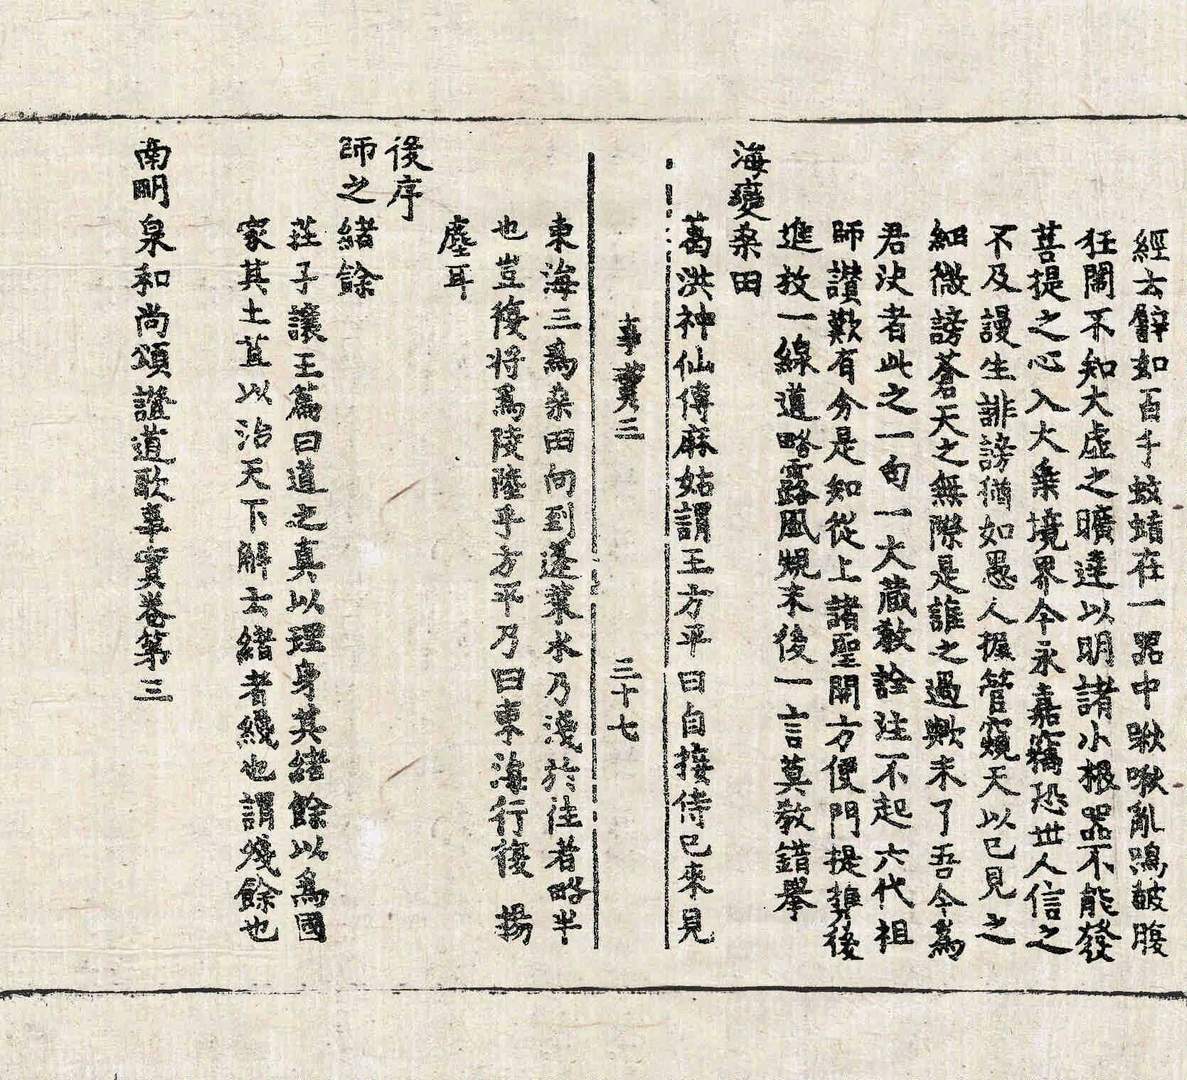 經云辟如百千蚊蜹在一器中啾啾亂鳴皷腹
狂鬧不知大虛之曠達以明諸小根器不能發
菩提之心入大乗境界今永嘉竊恐世人信之
不及謾生誹謗猶如愚人握管窺天以已見之
細微謗蒼天之無際是誰之過歟未了吾今爲
君決者此之一句一大藏敎詮注不起六代祖
師讃歎有分是知從上諸聖開方便門提奬後
進放一線道略露風規末後一言莫敎錯擧
海變桒田
葛洪神仙傳麻姑謂王方平曰自接侍已來見
事實三
三十七
東海三爲桒田向到蓬萊水乃淺於往者略半
也豈復將爲陵陸乎方平乃曰東海行復 揚
塵耳
後序
師之緒餘
莊子讓王篇曰道之真以理身其緒餘以爲國
家其土苴以治天下解云緒者纔也謂殘餘也
南明泉和尚頌證道歌事實卷第三